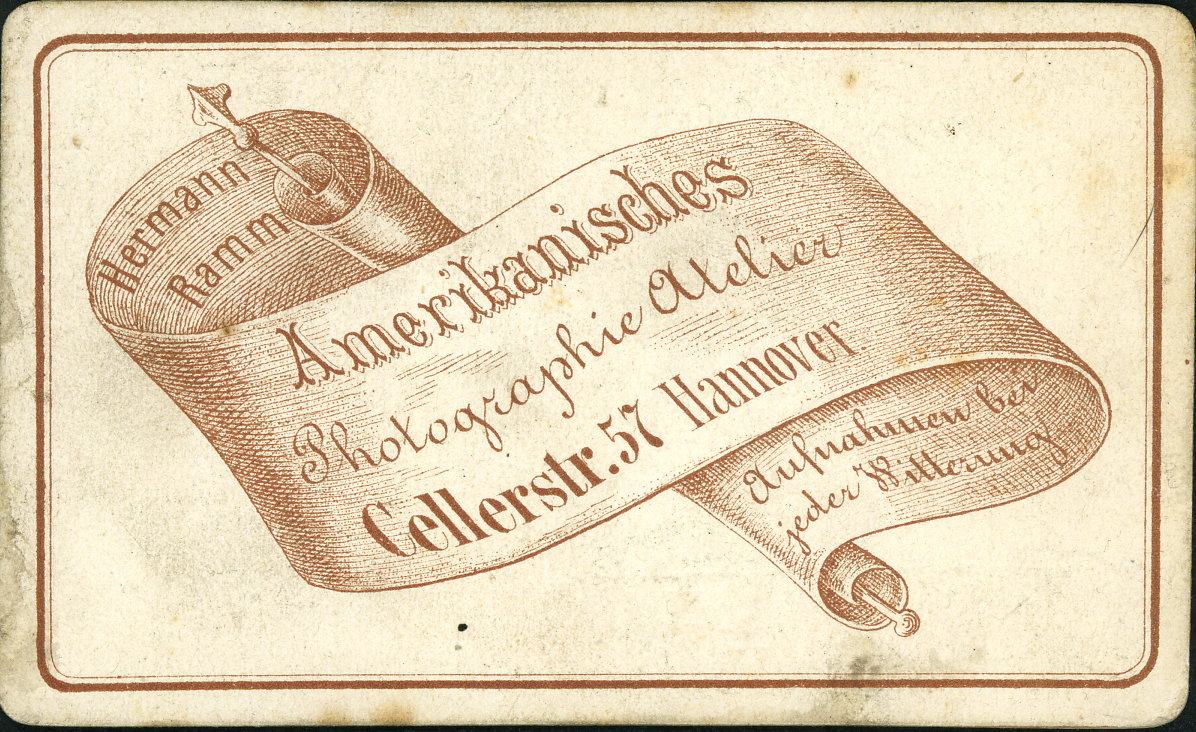 Hermann
Ramm
Amerikanisches
Photographie Atelier
Cellerstr. 57 Hannover
Aufnahmen bei
jeder Witterung